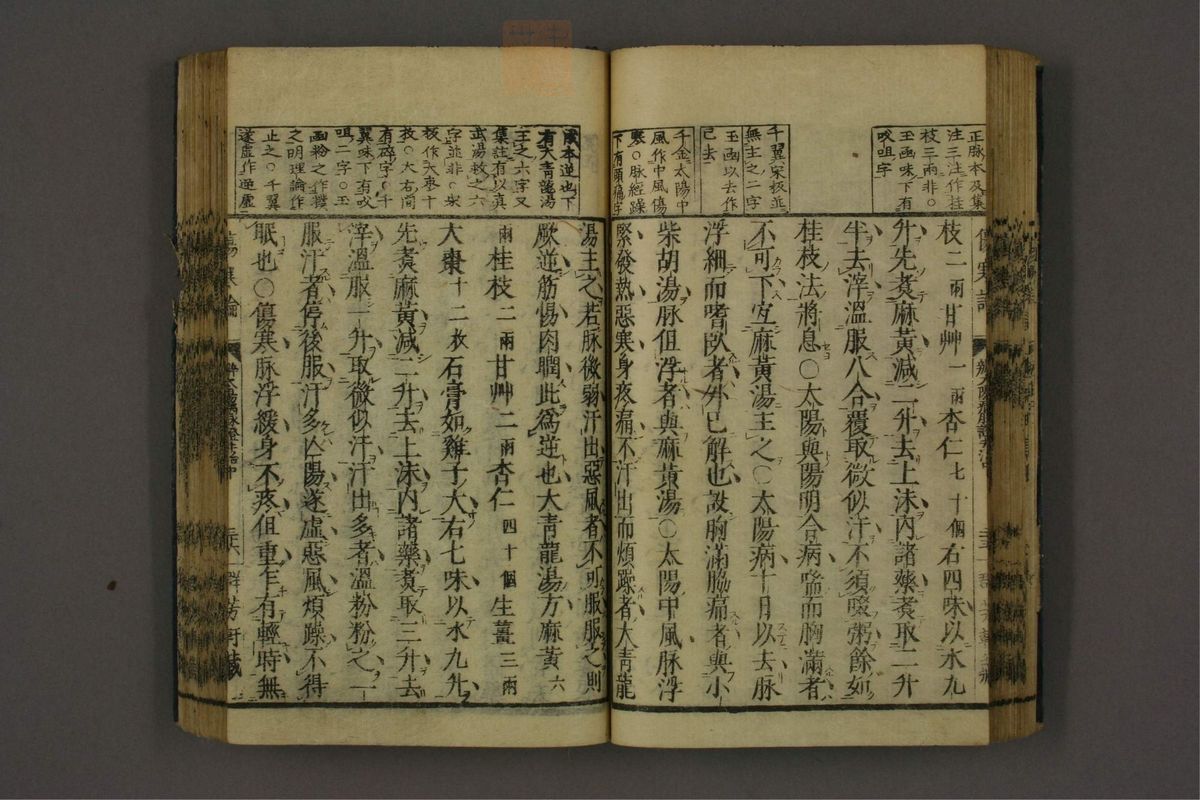 正脉本及集
注三注作桂
枝三兩非○
玉函味下有
㕮咀字
千翼宋板並
無主之二字
玉函以去作
已去
千金太陽中
風作中風傷
寒○脉經躁
下有頭痛字
枝二兩甘艸一兩杏仁七十個右四味以水九
升先煑麻黃減二升去上沫內諸藥煑取二升
半去滓溫服八合覆取微似汗不須啜粥餘如
桂枝法將息○太陽與陽明合病喘而胸滿者
不可下宜麻黃湯主之○太陽病十日以去脉
浮細而嗜臥者外已解也設胸滿脇痛者與小
柴胡湯脉但浮者與麻黃湯○太陽中風脉浮
緊發熱惡寒身疼痛不汗出而煩躁者大青龍
成本逆也下
有大青龍湯
主之六字又
集註有以真
武湯救之六
字並非○宋
板作大棗十
枚○太右間
有碎字○千
翼味下有㕮
咀二字○玉
函粉之作撲
之明理論作
止之○千翼
遂虛作逆虛
湯主之若脉微弱汗出惡風者不可服服之則
厥逆筋惕肉瞤此爲逆也大青龍湯方麻黃六
兩桂枝二兩甘艸二兩杏仁四十個生薑三兩
大棗十二枚石膏如雞子大右七味以水九升
先煑麻黃減二升去上沫內諸藥煑取三升去
滓溫服一升取微似汗汗出多者溫粉粉之一
服汗者停後服汗多亾陽遂虛惡風煩躁不得
眠也○傷寒脉浮緩身不疼但重乍有輕時無